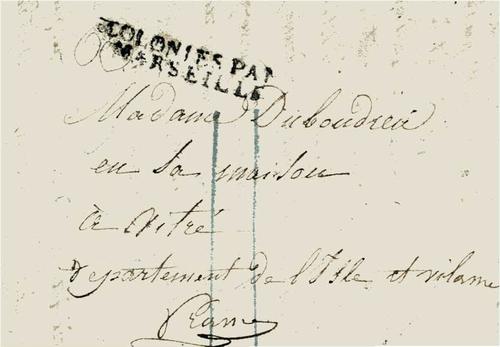 COLONIES PAR
MARSEILLE
Madame Duboudieu
en sa maison
à vitré
departement de l'Isle et vilame
france